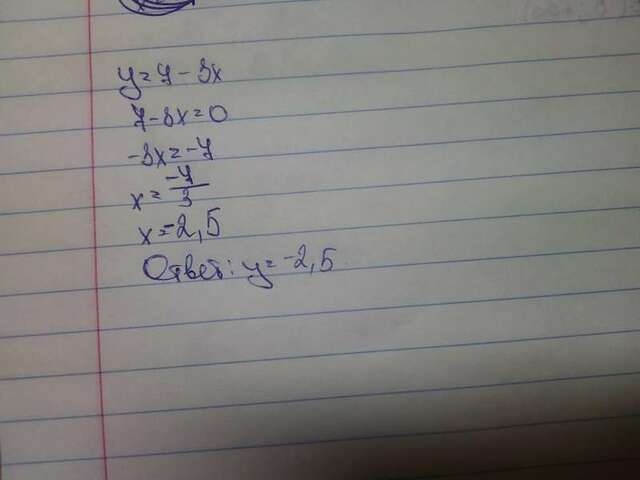 y=7-3x
7-3x=0
-3x=-7
x=-7/3
x=-2,5
Ответ: y=-2,5